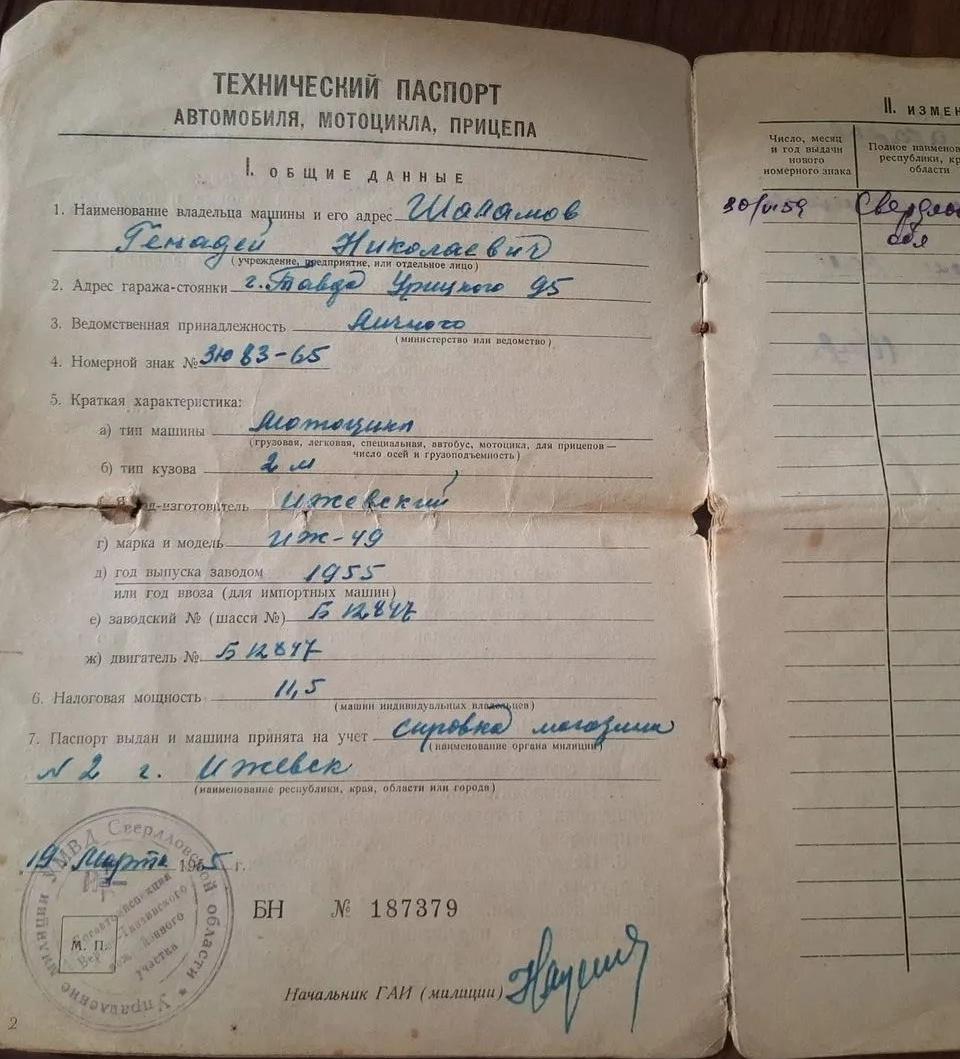 ТЕХНИЧЕСКИЙ ПАСПОРТ
АВТОМОБИЛЯ, МОТОЦИКЛА, ПРИЦЕПА
I. ОБЩИЕ ДАННЫЕ
1. Наименование владельца машины и его адрес Шаламов
Генадей Николаевич
(учреждение, предприятие, или отдельное лицо)
2. Адрес гаража-стоянки г. Тавда Урицкого 95
3. Ведомственная принадлежность Личного
(министерство или ведомство)
4. Номерной знак № ЗЮ 83-65
5. Краткая характеристика:
а) тип машины Мотоцикл
(грузовая, легковая, специальная, автобус, мотоцикл, для прицепов—
число осей и грузоподъемность)
б) тип кузова 2 м
од-изготовитель Ижевский
г) марка и модель ИЖ-49
д) год выпуска заводом 1955
или год ввоза (для импортных машин)
е) заводский № (шасси №) Б 12847
ж) двигатель № Б 12847
6. Налоговая мощность 11,5
(машин индивидуальных владельцев)
7. Паспорт выдан и машина принята на учет магазина
(наименование органа милиции)
N 2 г. Ижевск
(наименование республики, края, области или города)
19 Марта 1955 г.
Управление милиции УМВД Свердловской области
Госавтоинспекция
участка
М. П.
БН № 187379
Начальник ГАИ (милиции)
2
II. ИЗМЕН
Число, месяц
и год выдачи
нового
номерного знака
Полное наименов
республики, кр
области
30/VI 59 Свердлов
обл